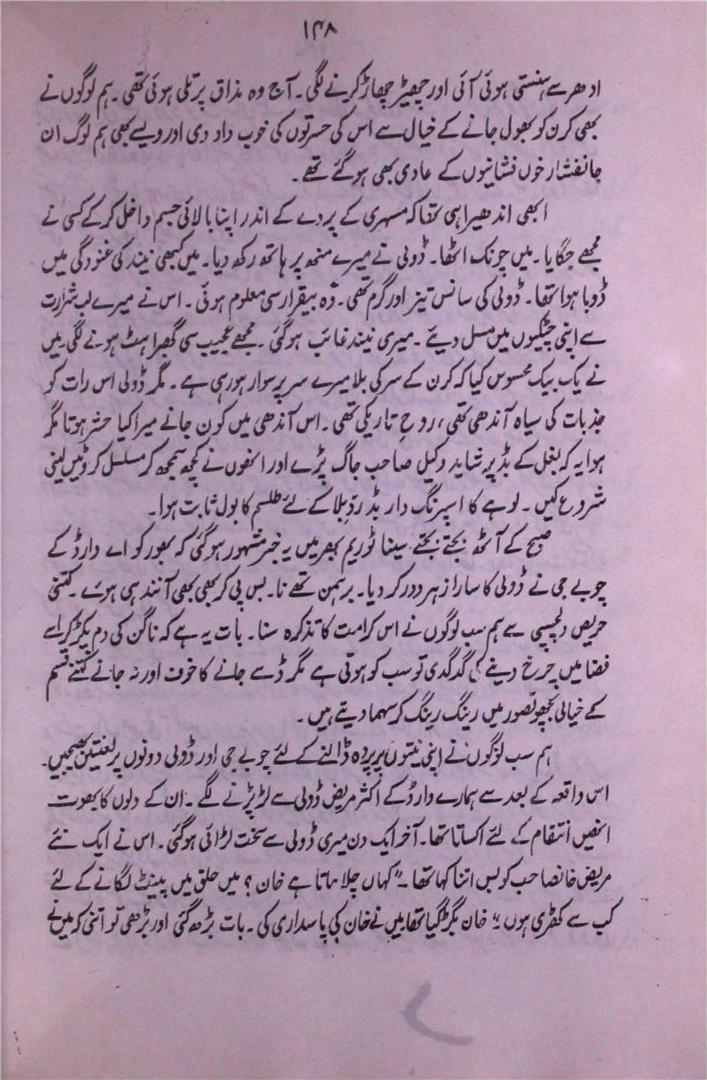 ۱۴۸
ادھر سے ہنستی ہوئی آئی اور چھیڑ چھاڑ کرنے لگی۔ آج وہ مذاق پر تلی ہوئی تھی۔ ہم لوگوں نے
بھی کرن کو بھول جانے کے خیال سے اس کی حسرتوں کی خوب داد دی اور ویسے بھی ہم لوگ ان
جانفشار خوں فشانیوں کے عادی بھی ہو گئے تھے۔
ابھی اندھیرا ہی تھا کہ مسہری کے پردے کے اندر اپنا بالائی جسم داخل کرکے کسی نے
مجھے جگایا۔ میں چونک اٹھا۔ ڈولی نے میرے منھ پر ہاتھ رکھ دیا۔ میں کبھی نیند کی غنودگی میں
ڈوبا ہوا تھا۔ ڈولی کی سانس تیز اور گرم تھی۔ وہ بیقرار سی معلوم ہوئی۔ اس نے میرے لب شرارت
سے اپنی چٹکیوں میں مسل دیئے۔ میری نیند غائب ہوگئی۔ مجھے عجیب سی گھبراہٹ ہونے لگی میں
نے یک بیک محسوس کیا کہ کرن کے سر کی بلا میرے سر پر سوار ہو رہی ہے۔ مگر ڈولی اس رات کو
جذبات کی سیاہ آندھی تھی، روحِ تاریکی تھی۔ اس آندھی میں کون جانے میرا کیا حشر ہوتا مگر
ہوا یہ کہ بغل کے بڈ پر شاید وکیل صاحب جاگ پڑے اور انھوں نے کچھ سمجھ کر مسلسل کروٹیں لینی
شروع کیں۔ لوہے کا اسپرنگ دار بڈ ردِّ بلا کے لئے طلسم کا بول ثابت ہوا۔
صبح کے آٹھ بجتے بجتے سینا ٹوریم بھر میں یہ خبر مشہور ہوگئی کہ بھور کو اے وارڈ کے
چوبے جی نے ڈولی کا سارا زہر دور کر دیا۔ برہمن تھے نا۔ بس پی کر بھی بھی آنند ہی ہوئے۔ کتنی
حریص دلچسپی سے ہم سب لوگوں نے اس کرامت کا تذکرہ سنا۔ بات یہ ہے کہ ناگن کی دم پکڑ کر اسے
فضا میں چرخ دینے کی گدگدی تو سب کو ہوتی ہے مگر ڈسے جانے کا خوف اور نہ جانے کتنے قسم
کے خیالی بچھو تصور میں رینگ رینگ کر سہما دیتے ہیں۔
ہم سب لوگوں نے اپنی نیتوں پر پردہ ڈالنے کے لئے چوبے جی اور ڈولی دونوں پر لعنتیں بھیجیں۔
اس واقعہ کے بعد سے ہمارے وارڈ کے اکثر مریض ڈولی سے لڑ پڑنے لگے۔ ان کے دلوں کا بھوت
انھیں انتقام کے لئے اکساتا تھا۔ آخر ایک دن میری ڈولی سے سخت لڑائی ہوگئی۔ اس نے ایک نئے
مریض خانصاحب کو بس اتنا کہا تھا۔ "کہاں چلا جاتا ہے خان؟ میں حلق میں پینٹ لگانے کے لئے
کب سے کھڑی ہوں۔" خان بگڑ گیا تھا میں نے خان کی پاسداری کی۔ بات بڑھ گئی اور بڑھی تو اتنی کہ میں نے